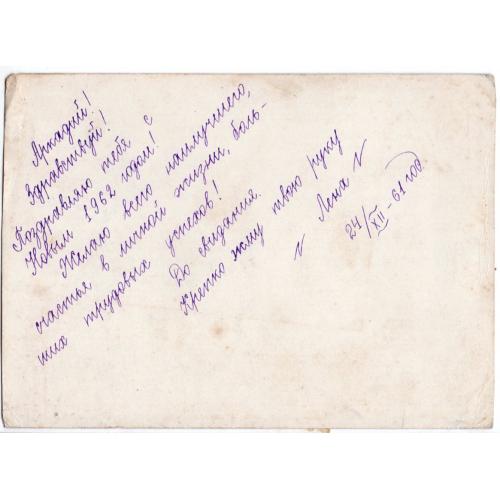 Аркадий!
Здравствуй!
Поздравляю тебя с
Новым 1962 годом!
Желаю всего наилучшего,
счастья в личной жизни, боль-
ших трудовых успехов!
До свидания.
Крепко жму твою руку
Лена
24/XII-61 год